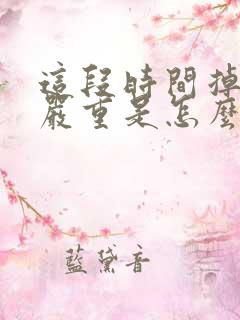 這段時間掉
嚴重是怎麼
藍黛音